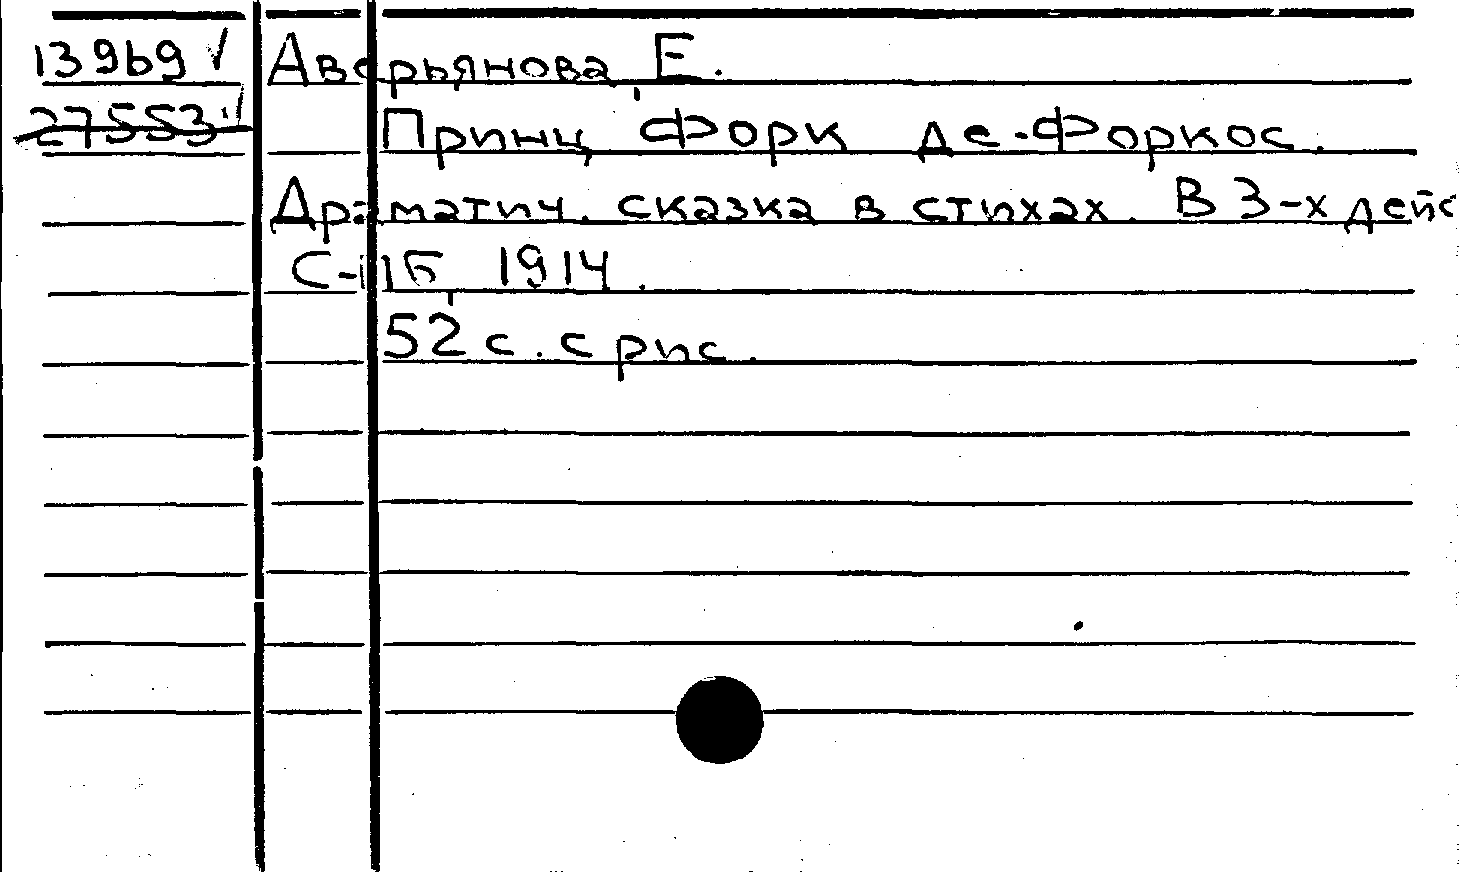 13969 ✓ Аверьянова, Е.
27553 Принц Форк де-Форкос.
Драматич. сказка в стихах. В 3-х дейс
С-ПБ, 1914.
52 с. с рис.